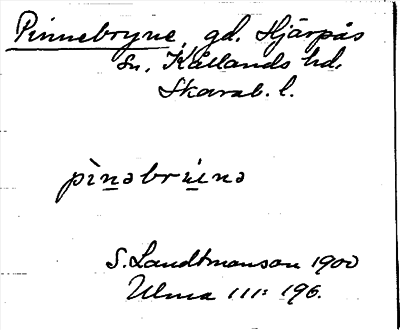 Pinnebryne, gd. Hjärpås
sn, Kållands hd.
Skarab. l.
pìnəbrùnə
S. Landtmanson 1900
Ulma 111: 196.